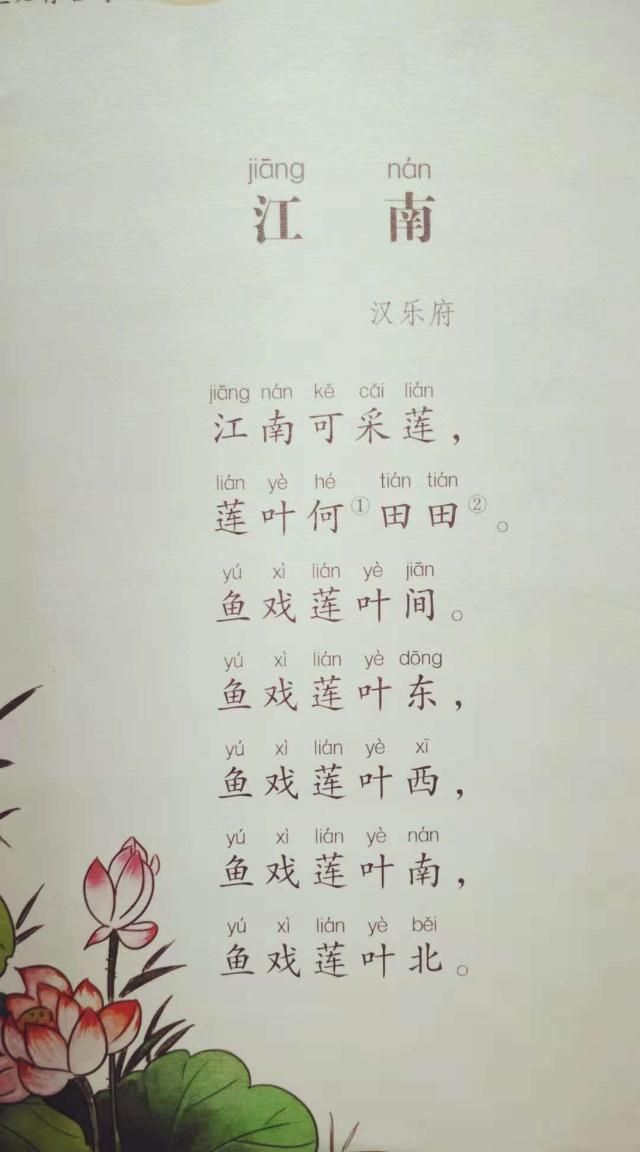 jiāng nán
江 南
汉乐府
jiāng nán kě cǎi lián
江南可采莲，
lián yè hé tián tián
莲叶何①田田②。
yú xì lián yè jiān
鱼戏莲叶间。
yú xì lián yè dōng
鱼戏莲叶东，
yú xì lián yè xī
鱼戏莲叶西，
yú xì lián yè nán
鱼戏莲叶南，
yú xì lián yè běi
鱼戏莲叶北。